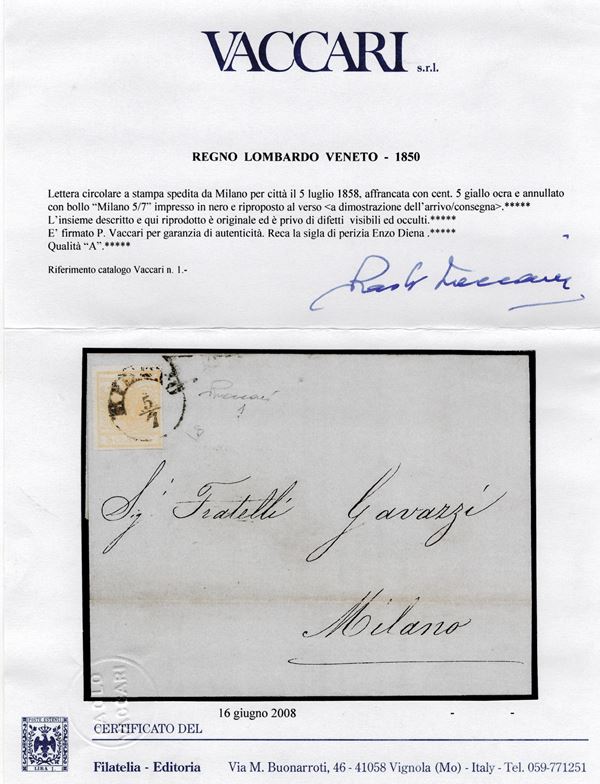 VACCARI s.r.l.
REGNO LOMBARDO VENETO - 1850
Lettera circolare a stampa spedita da Milano per città il 5 luglio 1858, affrancata con cent. 5 giallo ocra e annullato
con bollo "Milano 5/7" impresso in nero e riproposto al verso <a dimostrazione dell'arrivo/consegna>.*****
L'insieme descritto e qui riprodotto è originale ed è privo di difetti visibili ed occulti.*****
E' firmato P. Vaccari per garanzia di autenticità. Reca la sigla di perizia Enzo Diena .*****
Qualità "A".*****
Riferimento catalogo Vaccari n. 1.-
Paolo Vaccari
MILANO
5/7
Vaccari
Sig.i Fratelli Gavazzi
Milano
PAOLO VACCARI
16 giugno 2008 - -
POSTE ESTENSI
LIRA 1
CERTIFICATO DEL
Filatelia - Editoria Via M. Buonarroti, 46 - 41058 Vignola (Mo) - Italy - Tel. 059-771251